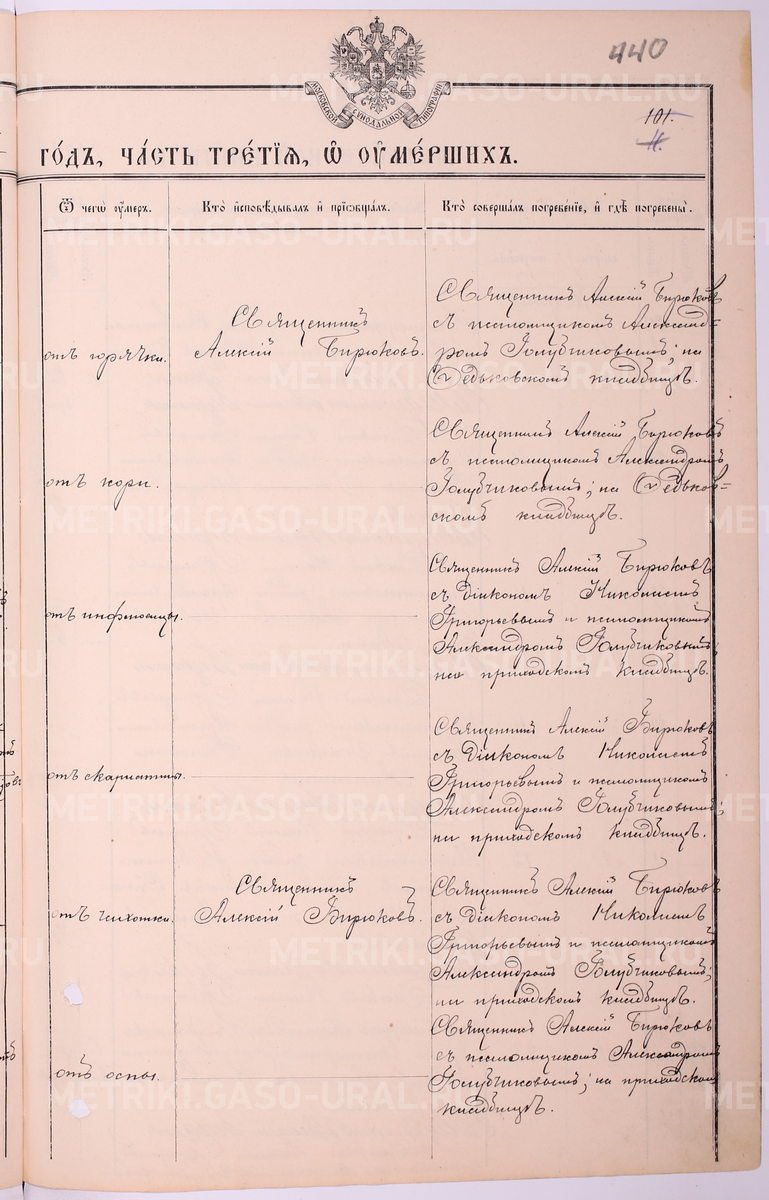 440
МОСКОВСКОЙ СѴНОДАЛЬНОЙ ТИПОГРАФІИ
101.
го́дъ, ча́сть тре́тїѧ, ѡ҆ оу҆ме́ршихъ.
Ѿ чегѡ̀ оу҆́меръ.
Кто̀ и҆сповѣ́дывалъ и҆ прїѡбща́лъ.
Кто̀ соверша́лъ погребе́нїе, и҆ гдѣ̀ погребены̀.
отъ горячки.
Священникъ
Алексій Бирюковъ.
Священникъ Алексій Бирюковъ
съ псаломщикомъ Александ-
ромъ Голубчиковымъ; на
Ѳедьковскомъ кладбищѣ.
отъ кори.
Священникъ Алексій Бирюковъ
съ псаломщикомъ Александромъ
Голубчиковымъ; на Ѳедьков-
скомъ кладбищѣ.
отъ инфлюенцы.
Священникъ Алексій Бирюковъ
съ діакономъ Николаемъ
Григорьевымъ и псаломщикомъ
Александромъ Голубчиковымъ;
на приходскомъ кладбищѣ.
отъ скарлатины.
Священникъ Алексій Бирюковъ
съ діакономъ Николаемъ
Григорьевымъ и псаломщикомъ
Александромъ Голубчиковымъ;
на приходскомъ кладбищѣ.
отъ чахотки.
Священникъ
Алексій Бирюковъ.
Священникъ Алексій Бирюковъ
съ діакономъ Николаемъ
Григорьевымъ и псаломщикомъ
Александромъ Голубчиковымъ;
на приходскомъ кладбищѣ.
отъ оспы.
Священникъ Алексій Бирюковъ
съ псаломщикомъ Александромъ
Голубчиковымъ; на приходскомъ
кладбищѣ.
METRIKI.GASO-URAL.RU